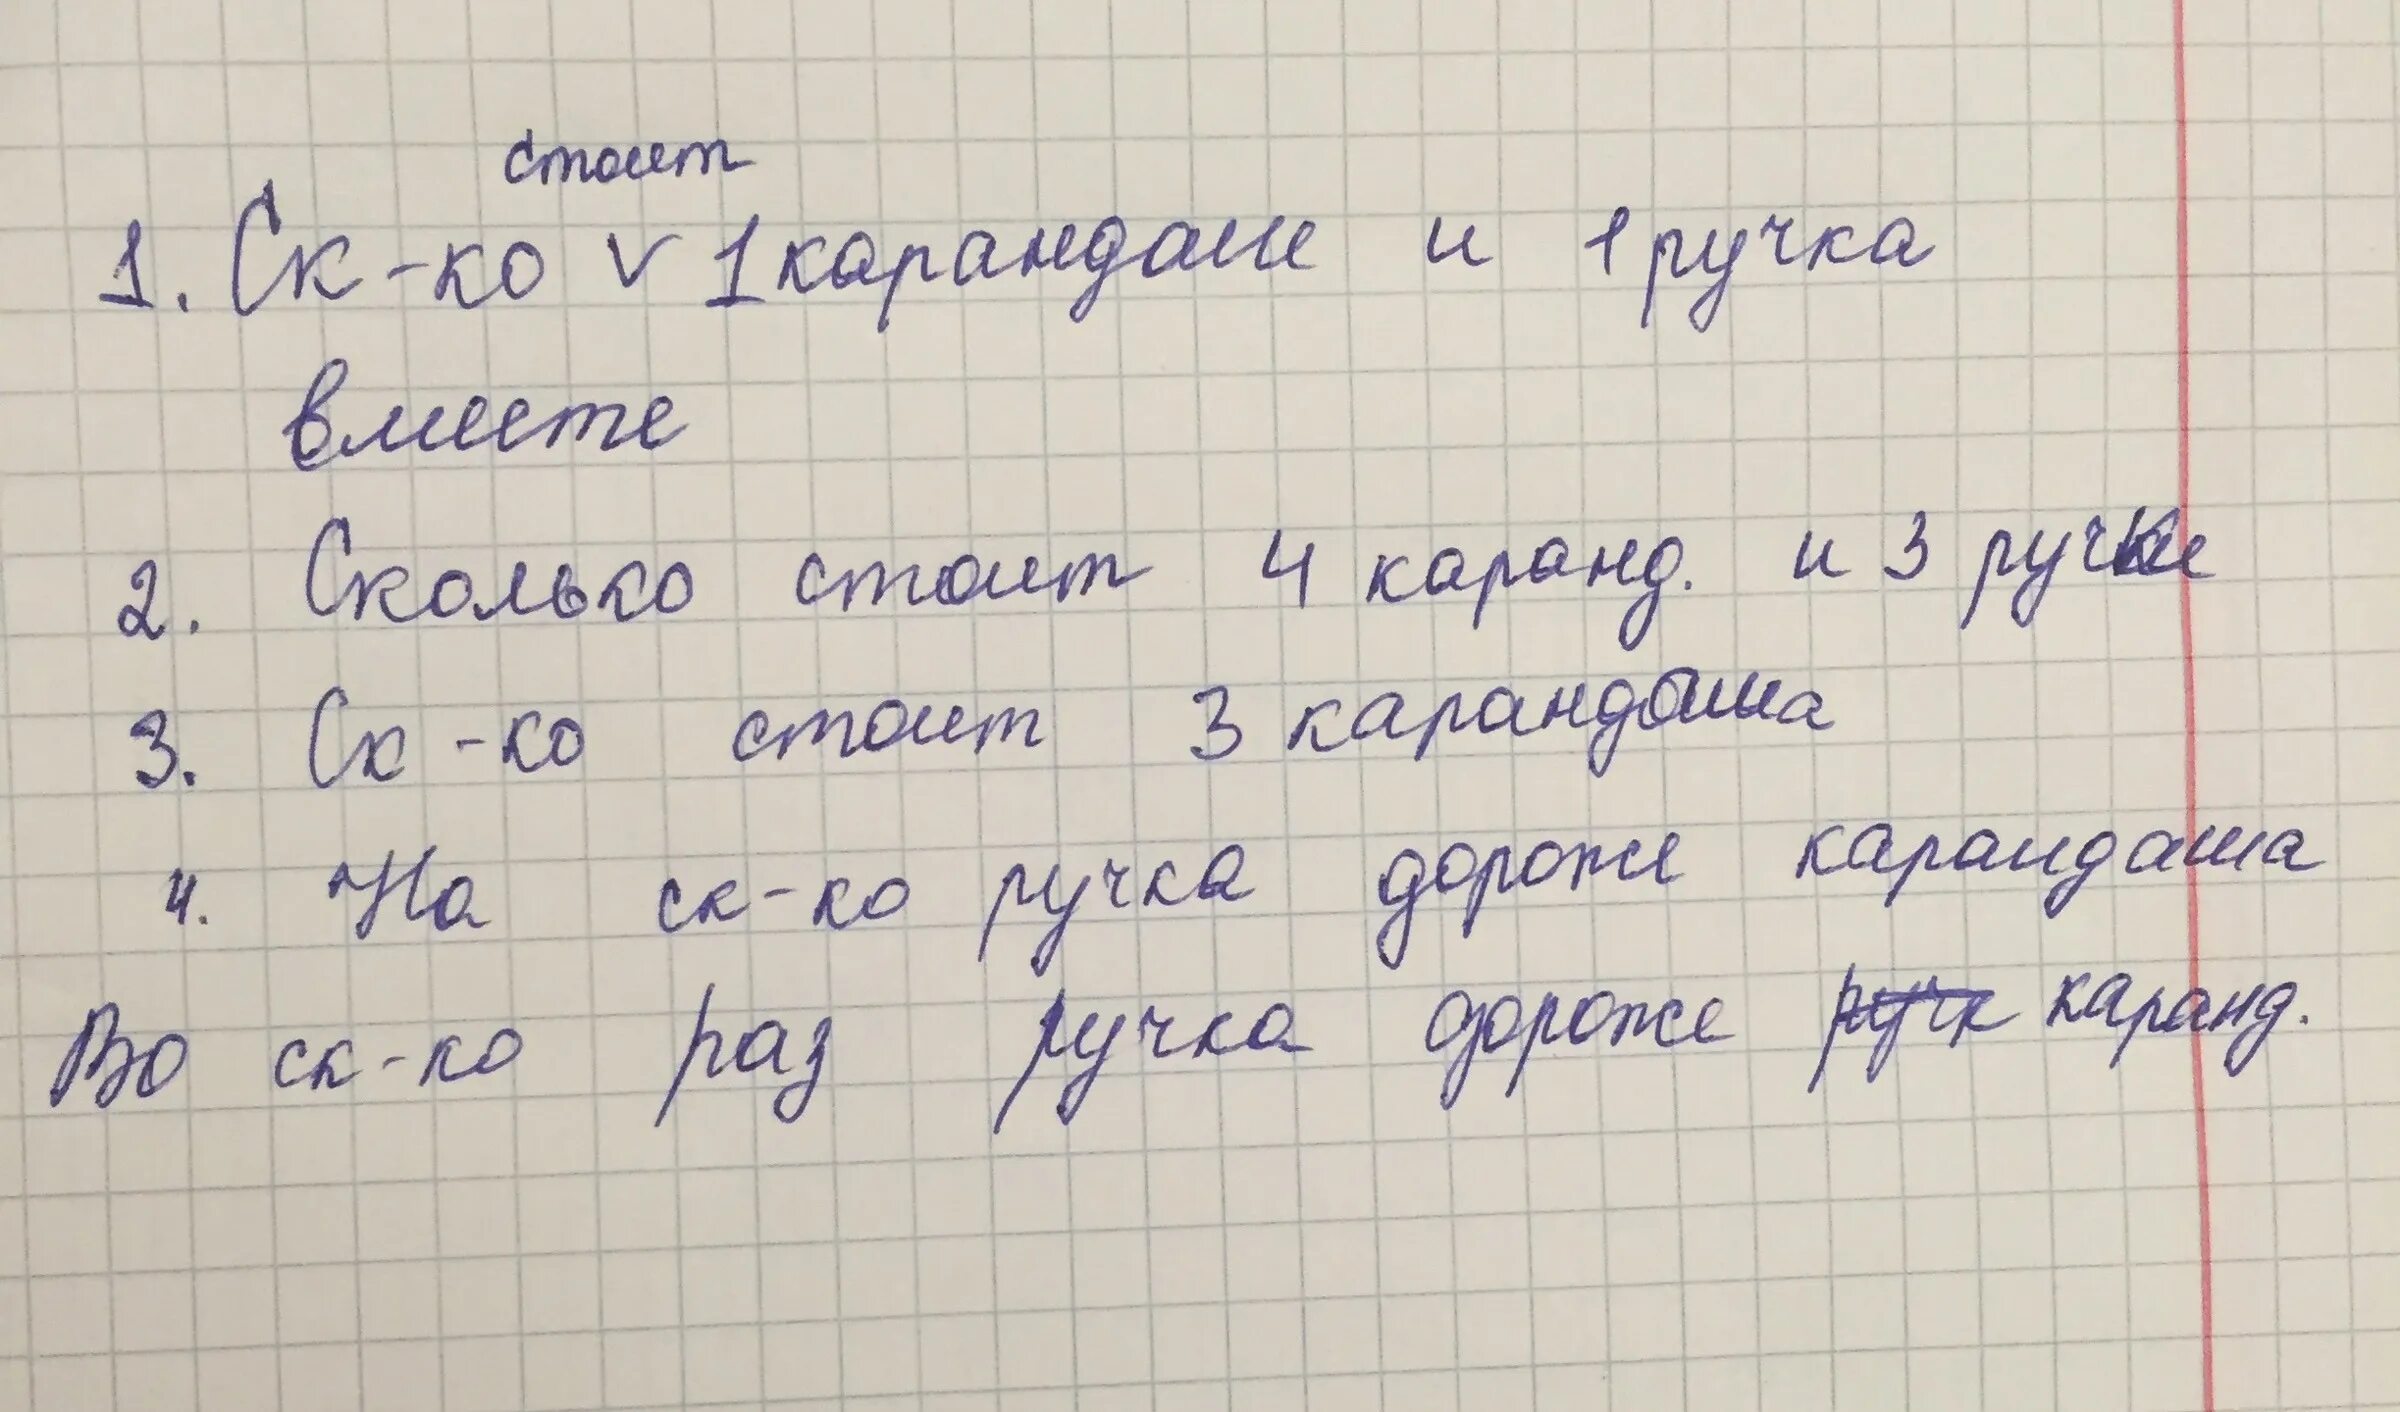 стоит
1. Ск-ко v 1 карандаш и 1 ручка
вместе
2. Сколько стоит 4 каранд. и 3 ручки
3. Ск-ко стоит 3 карандаша
4. На ск-ко ручка дороже карандаша
Во ск-ко раз ручка дороже ручк каранд.